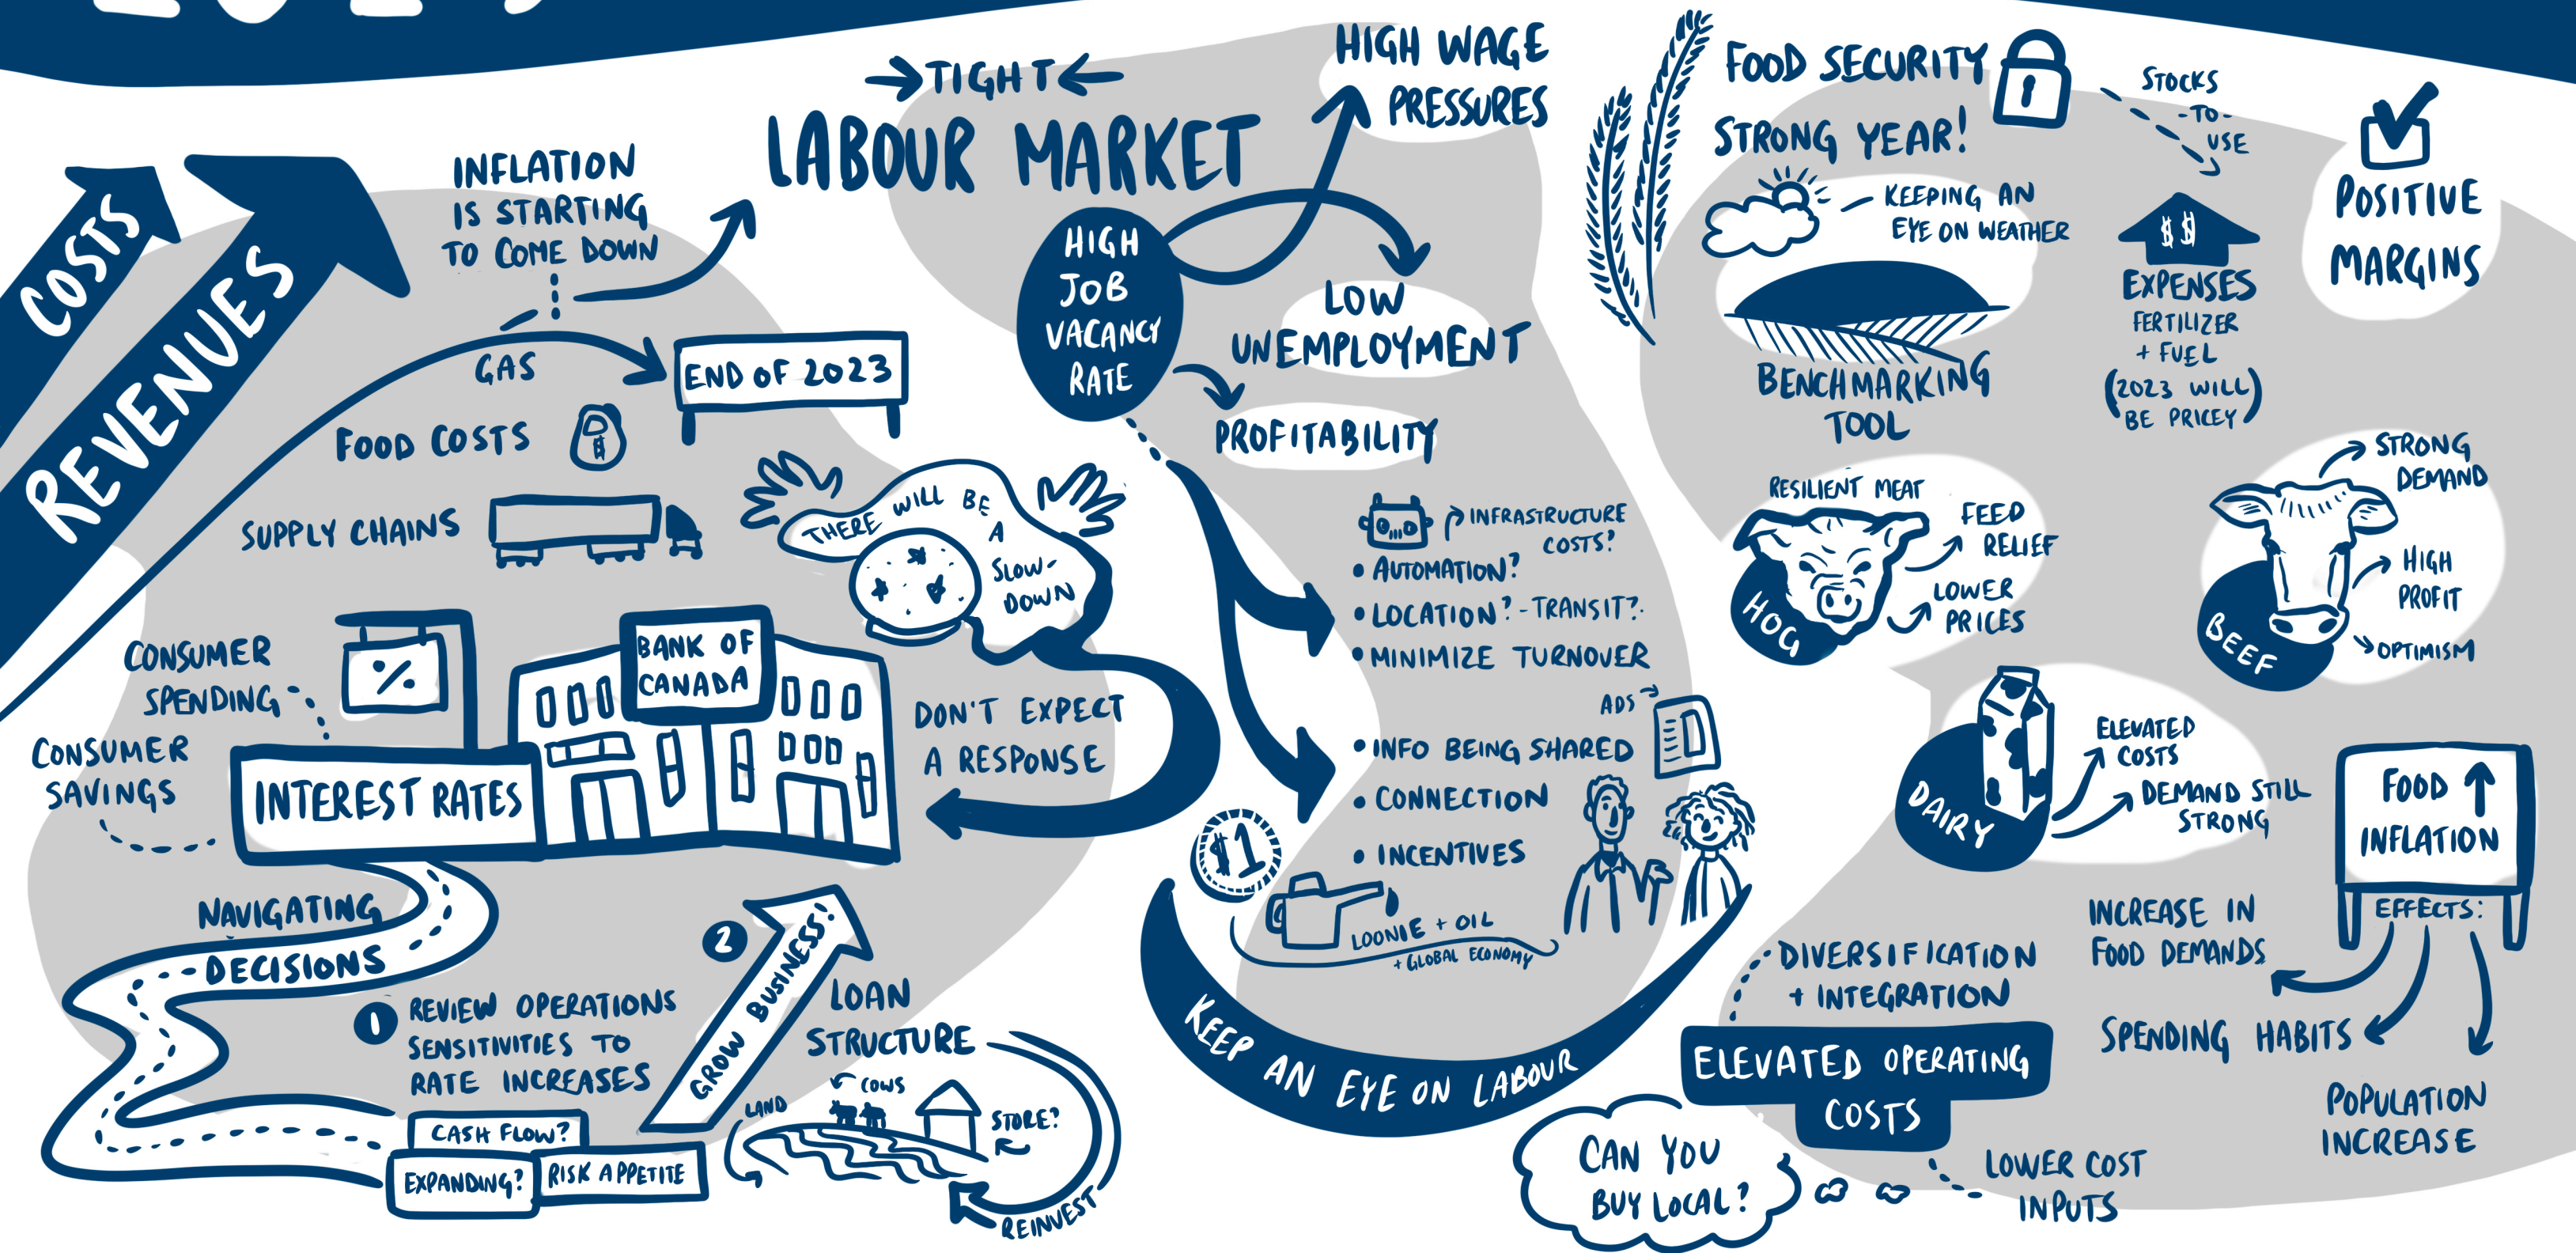 COSTS
REVENUES
INFLATION
IS STARTING
TO COME DOWN
GAS
END OF 2023
FOOD COSTS
$
SUPPLY CHAINS
CONSUMER
SPENDING
CONSUMER
SAVINGS
%
INTEREST RATES
BANK OF
CANADA
THERE WILL BE
A
SLOW-
DOWN
DON'T EXPECT
A RESPONSE
NAVIGATING
DECISIONS
1 REVIEW OPERATIONS
SENSITIVITIES TO
RATE INCREASES
CASH FLOW?
EXPANDING?
RISK APPETITE
2
GROW BUSINESS!
LOAN
STRUCTURE
COWS
LAND
STORE?
REINVEST
→TIGHT←
LABOUR MARKET
HIGH
JOB
VACANCY
RATE
HIGH WAGE
PRESSURES
LOW
UNEMPLOYMENT
PROFITABILITY
INFRASTRUCTURE
COSTS?
• AUTOMATION?
• LOCATION? - TRANSIT?
• MINIMIZE TURNOVER
ADS
• INFO BEING SHARED
• CONNECTION
• INCENTIVES
$1
LOONIE + OIL
+ GLOBAL ECONOMY
KEEP AN EYE ON LABOUR
FOOD SECURITY
STRONG YEAR!
KEEPING AN
EYE ON WEATHER
BENCHMARKING
TOOL
STOCKS
-TO-
USE
$$
EXPENSES
FERTILIZER
+ FUEL
(2023 WILL
BE PRICEY)
POSITIVE
MARGINS
RESILIENT MEAT
HOG
FEED
RELIEF
LOWER
PRICES
BEEF
STRONG
DEMAND
HIGH
PROFIT
OPTIMISM
DAIRY
ELEVATED
COSTS
DEMAND STILL
STRONG
FOOD ↑
INFLATION
EFFECTS:
INCREASE IN
FOOD DEMANDS
SPENDING HABITS
POPULATION
INCREASE
DIVERSIFICATION
+ INTEGRATION
ELEVATED OPERATING
COSTS
LOWER COST
INPUTS
CAN YOU
BUY LOCAL?